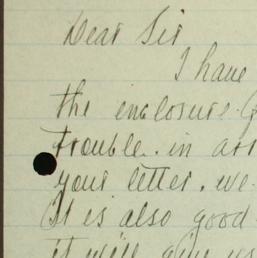 Dear Sir
I have
the enclosure
trouble. in arr
your letter. we
It is also good
it will give us